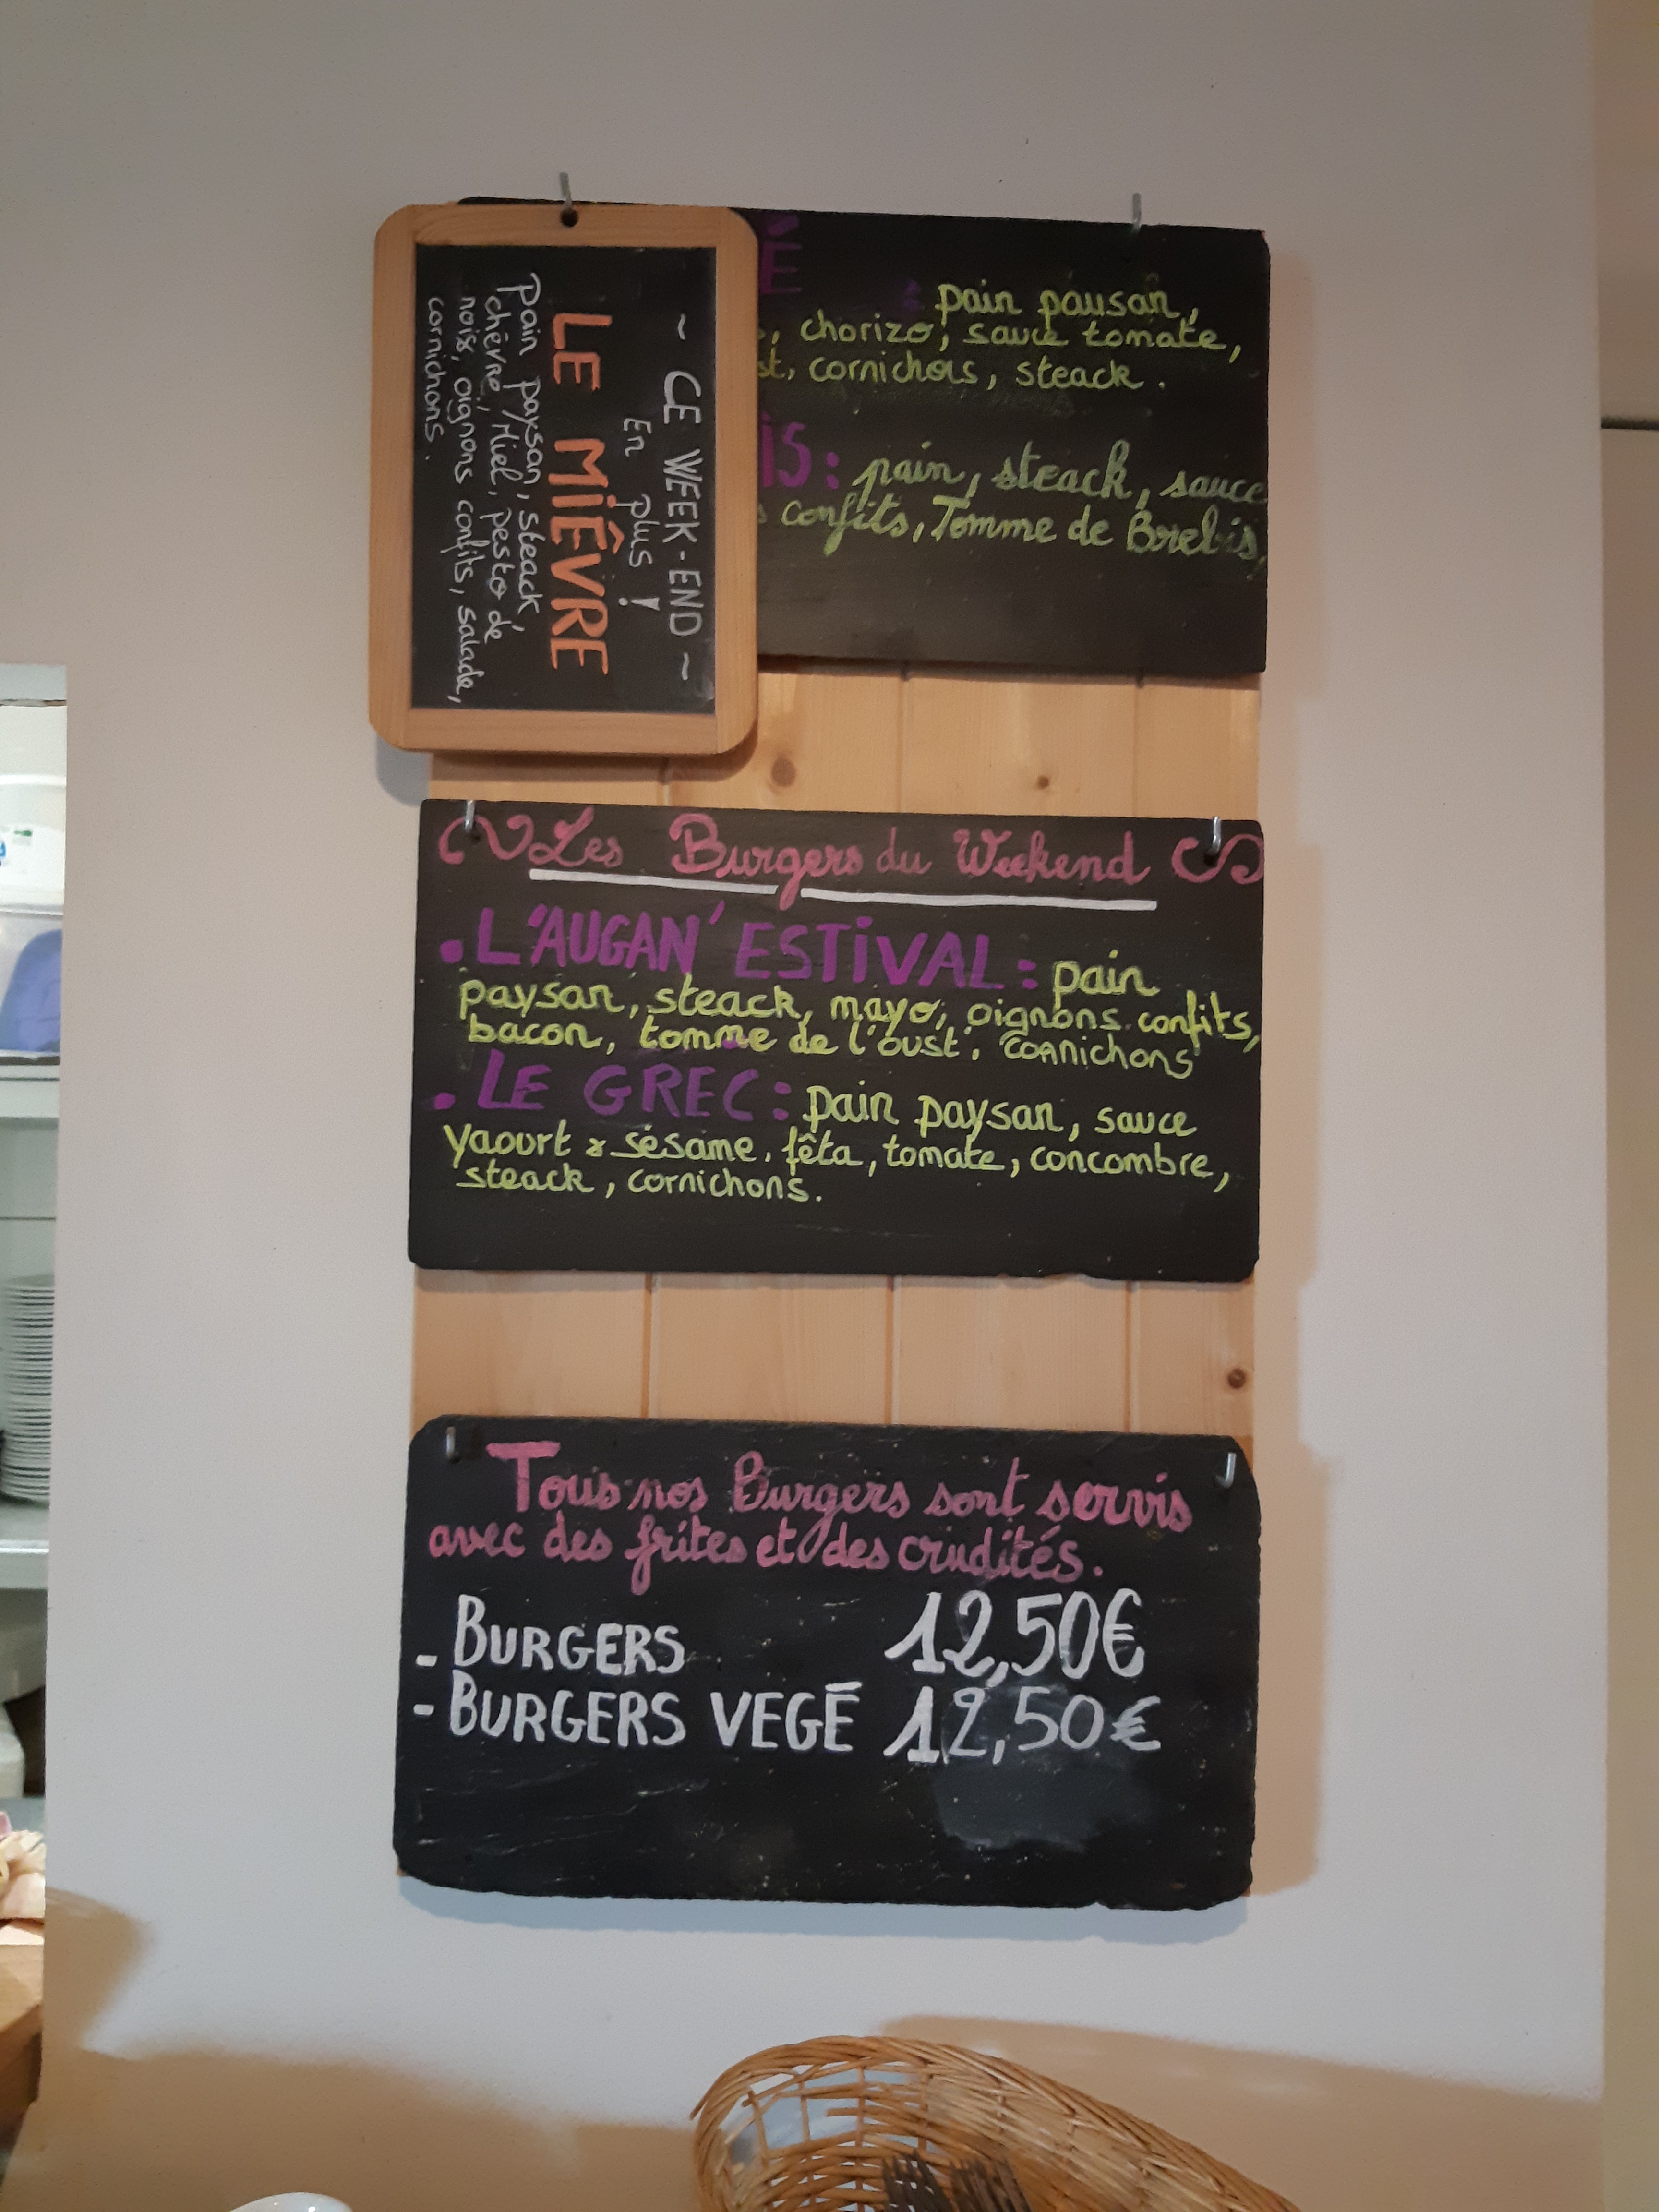 ~ CE WEEK-END ~
En plus !
LE MIÊVRE
Pain paysan, steack,
chèvre, Miel, pesto de
noix, oignons confits, salade,
cornichons.
: pain paysan,
chorizo, sauce tomate,
cornichons, steack.
pain, steack, sauce
confits, Tomme de Brebis,
Les Burgers du Weekend
. L'AUGAN' ESTIVAL : pain
paysan, steack, mayo, oignons confits,
bacon, tomme de l'oust, cornichons
. LE GREC : pain paysan, sauce
yaourt & sésame, fêta, tomate, concombre,
steack, cornichons.
Tous nos Burgers sont servis
avec des frites et des crudités.
- BURGERS 12,50€
- BURGERS VEGÉ 12,50€